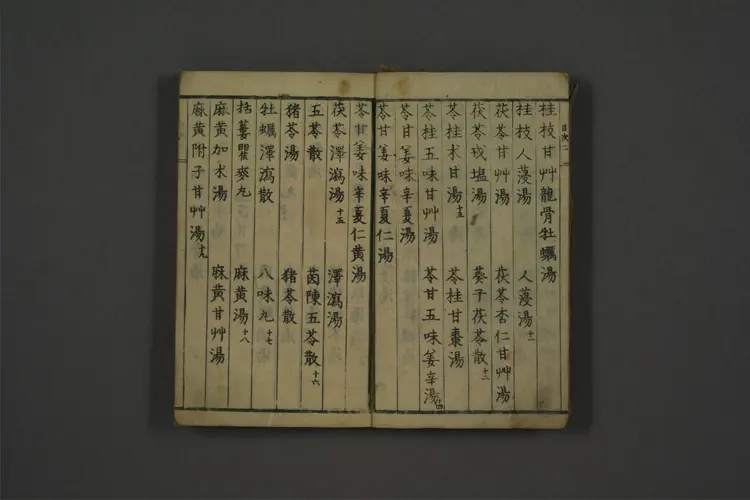 目次二
桂枝甘艸龍骨牡蠣湯
桂枝人薓湯 人薓湯十一
茯苓甘艸湯 茯苓杏仁甘艸湯
茯苓戎塩湯 葵子茯苓散十二
苓桂朮甘湯十三 苓桂甘棗湯
苓桂五味甘艸湯 苓甘五味姜辛湯十四
苓甘姜味辛夏湯
苓甘姜味辛夏仁湯
苓甘姜味辛夏仁黄湯
茯苓澤瀉湯十五 澤瀉湯
五苓散 茵陳五苓散十六
猪苓湯 猪苓散
牡蠣澤瀉散 八味丸十七
括蔞瞿麥丸 麻黄湯十八
麻黄加朮湯 麻黄甘艸湯
麻黄附子甘艸湯十九